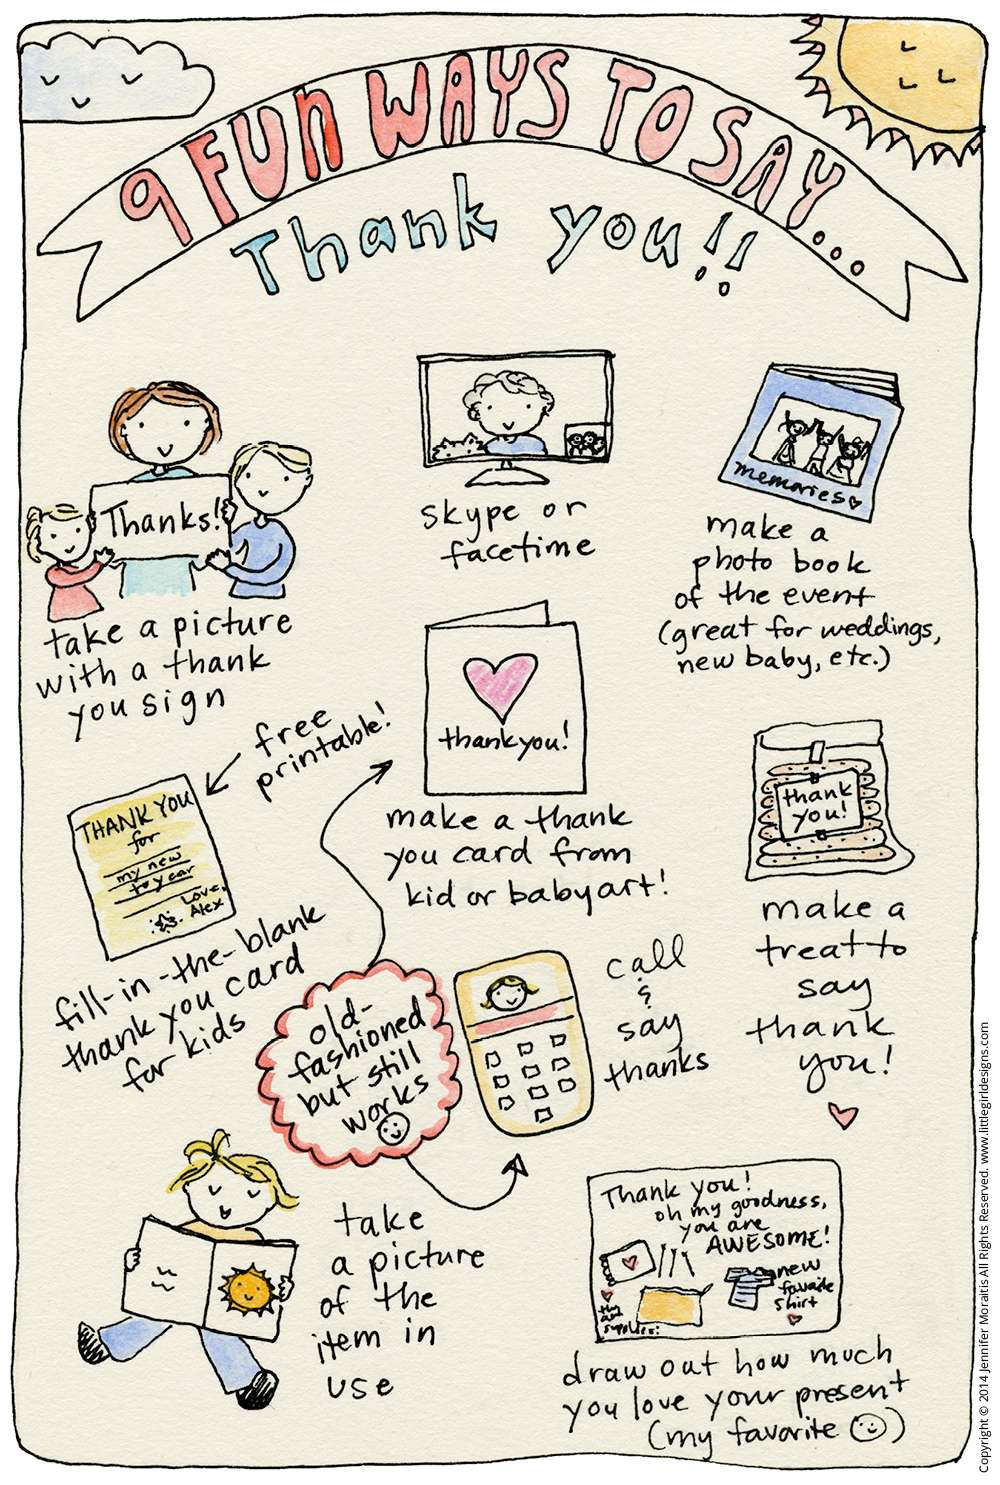 9 FUN WAYS TO SAY...
Thank you!!
Thanks!
take a picture
with a thank
you sign
skype or
facetime
memories
make a
photo book
of the event
(great for weddings,
new baby, etc.)
free
printable!
THANK YOU
for
my new
toy car
Love,
Alex
fill-in-the-blank
thank you card
for kids
thank you!
make a thank
you card from
kid or baby art!
thank
you!
make a
treat to
say
thank
you!
old-
fashioned
but still
works
call
&
say
thanks
take
a picture
of the
item in
use
Thank you!
oh my goodness,
you are
AWESOME!
new
favorite
shirt
supplies!
draw out how much
you love your present
(my favorite )
Copyright © 2014 Jennifer Moraitis All Rights Reserved. www.littlegirldesigns.com